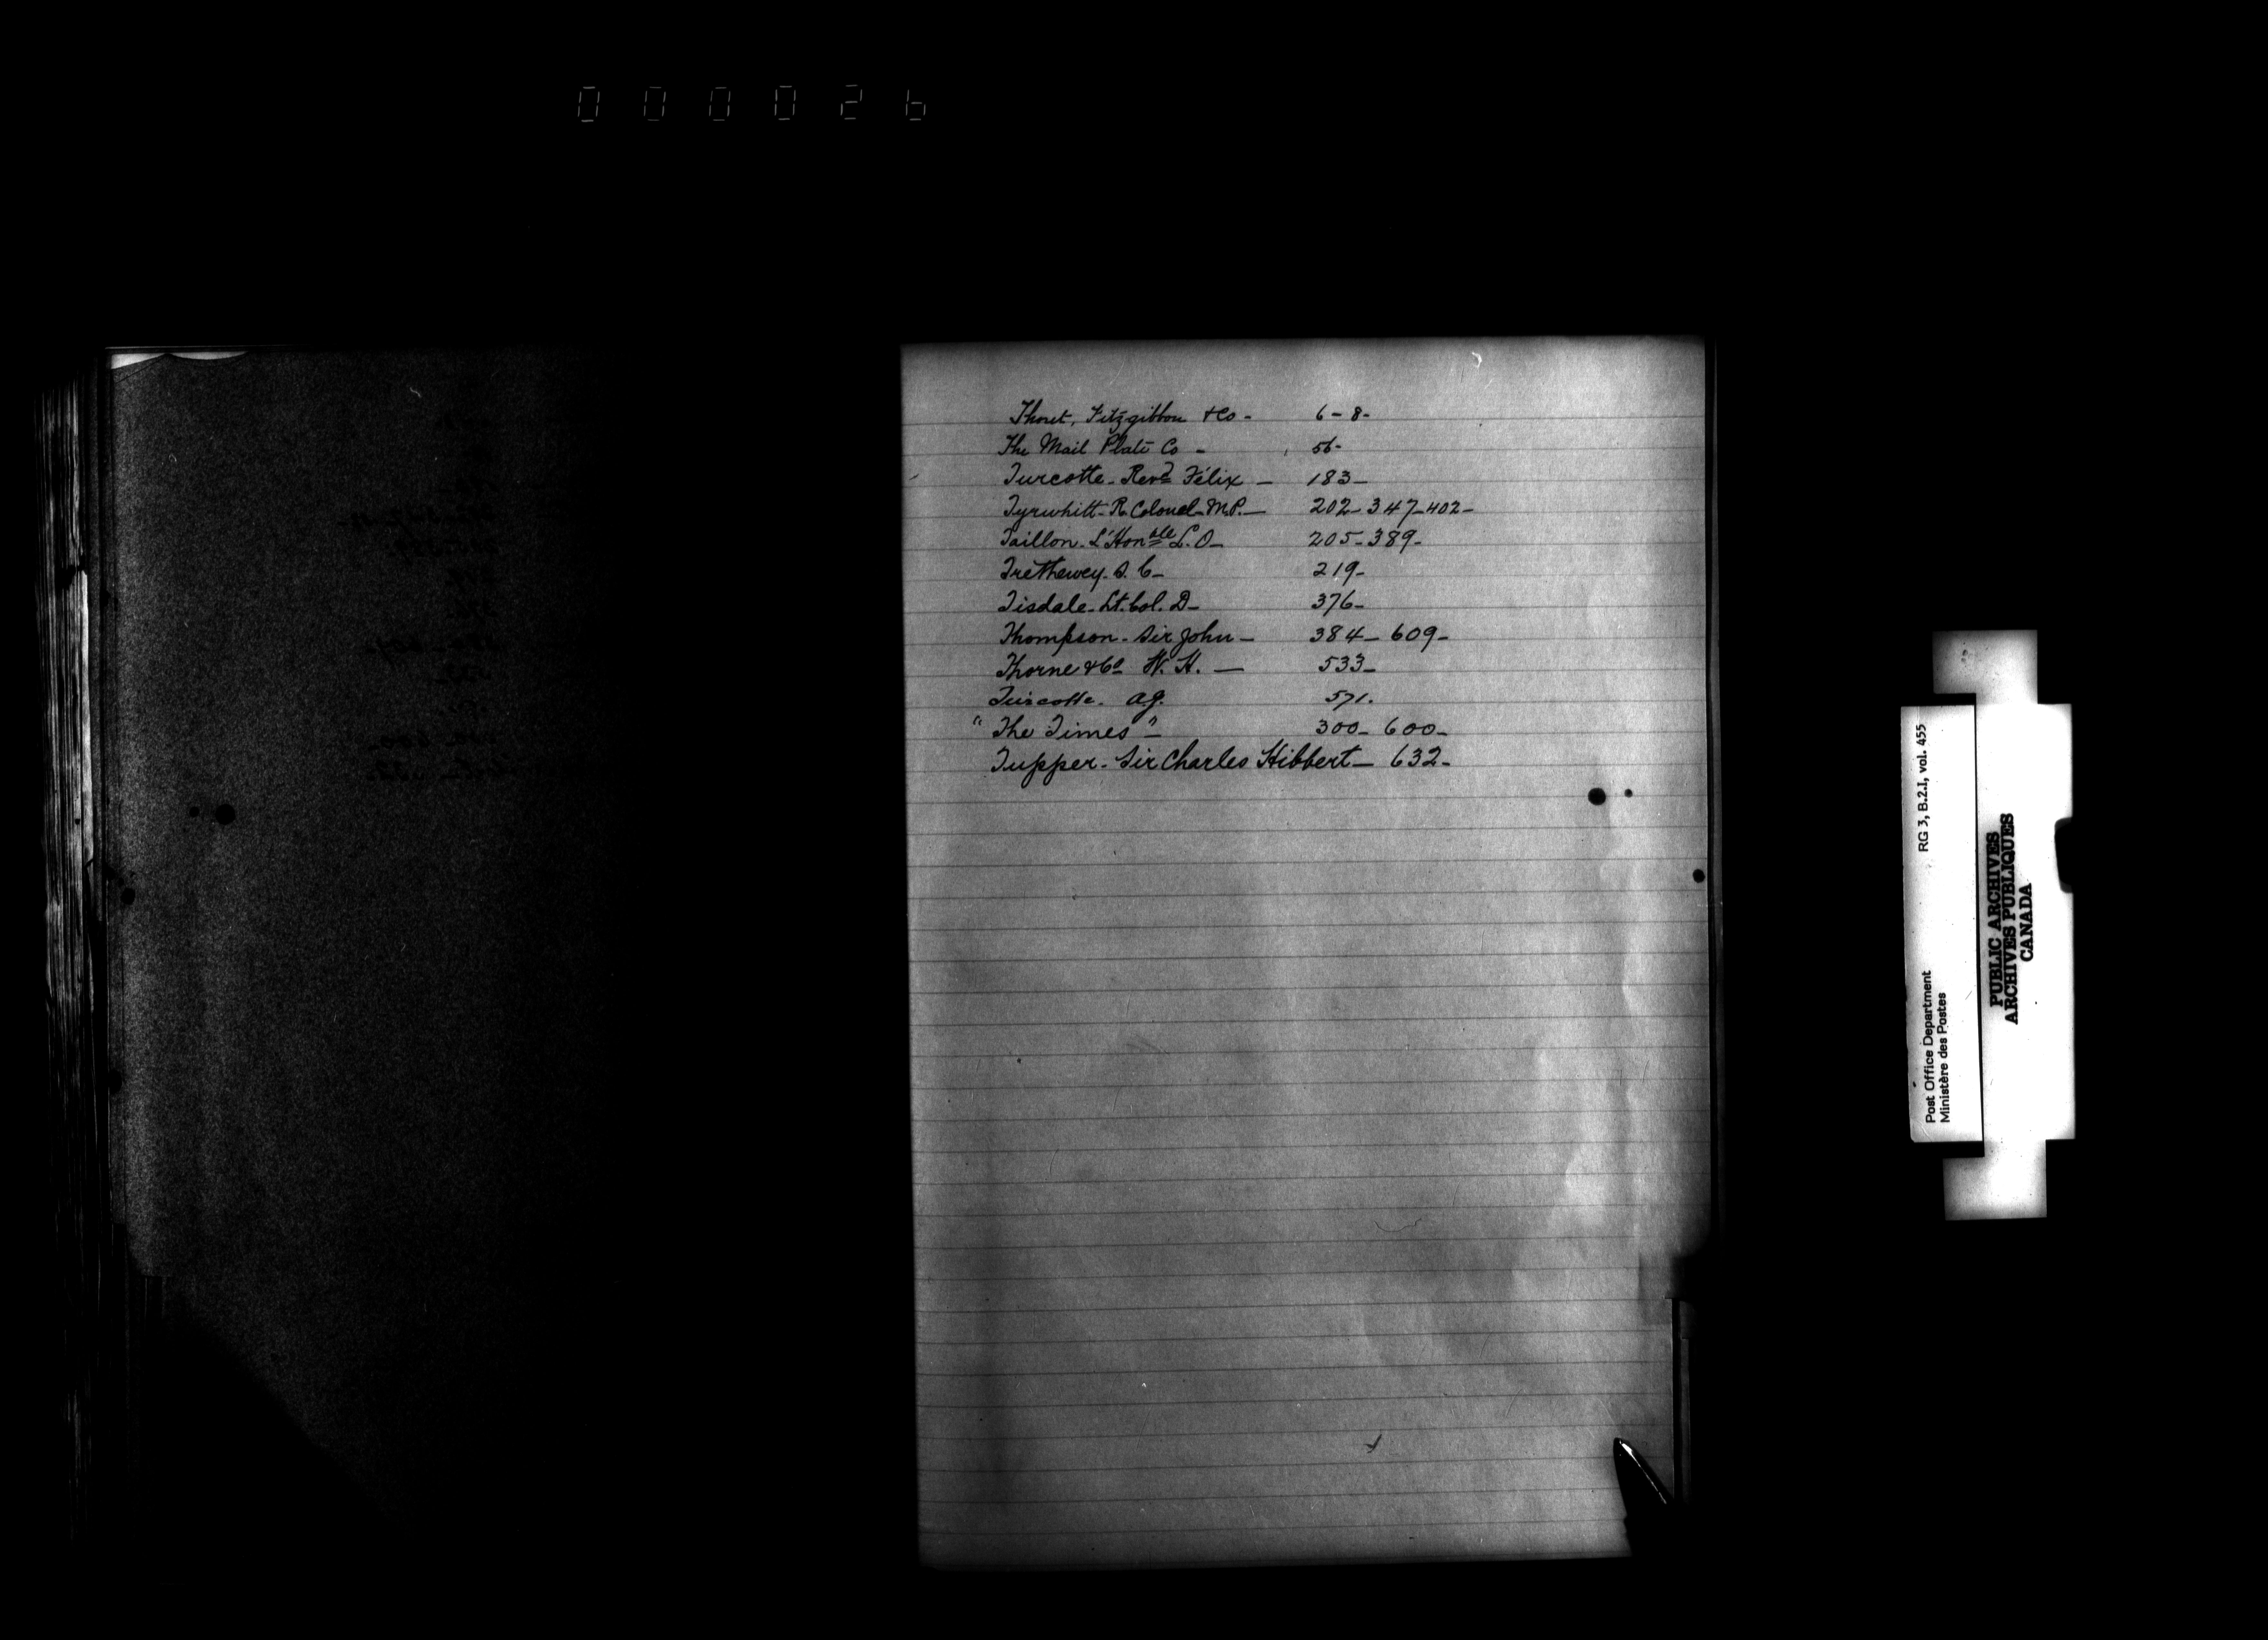 000026
Thoret, Fitzgibbon & Co - 6 - 8 -
The Mail Plate Co - 56 -
Turcotte - Revd Félix - 183 -
Tyrwhitt - R. Colonel - M.P. - 202 - 347 - 402 -
Taillon - L'Honble L. O - 205 - 389 -
Trethewey - S. C - 219 -
Tisdale - Lt. Col. D - 376 -
Thompson - Sir John - 384 - 609 -
Thorne & Co W. H. - 533 -
Turcotte - A.J. 571.
"The Times" - 300 - 600 -
Tupper - Sir Charles Hibbert - 632 -
Post Office Department RG 3, B.2.I, vol. 455
Ministère des Postes
PUBLIC ARCHIVES
ARCHIVES PUBLIQUES
CANADA